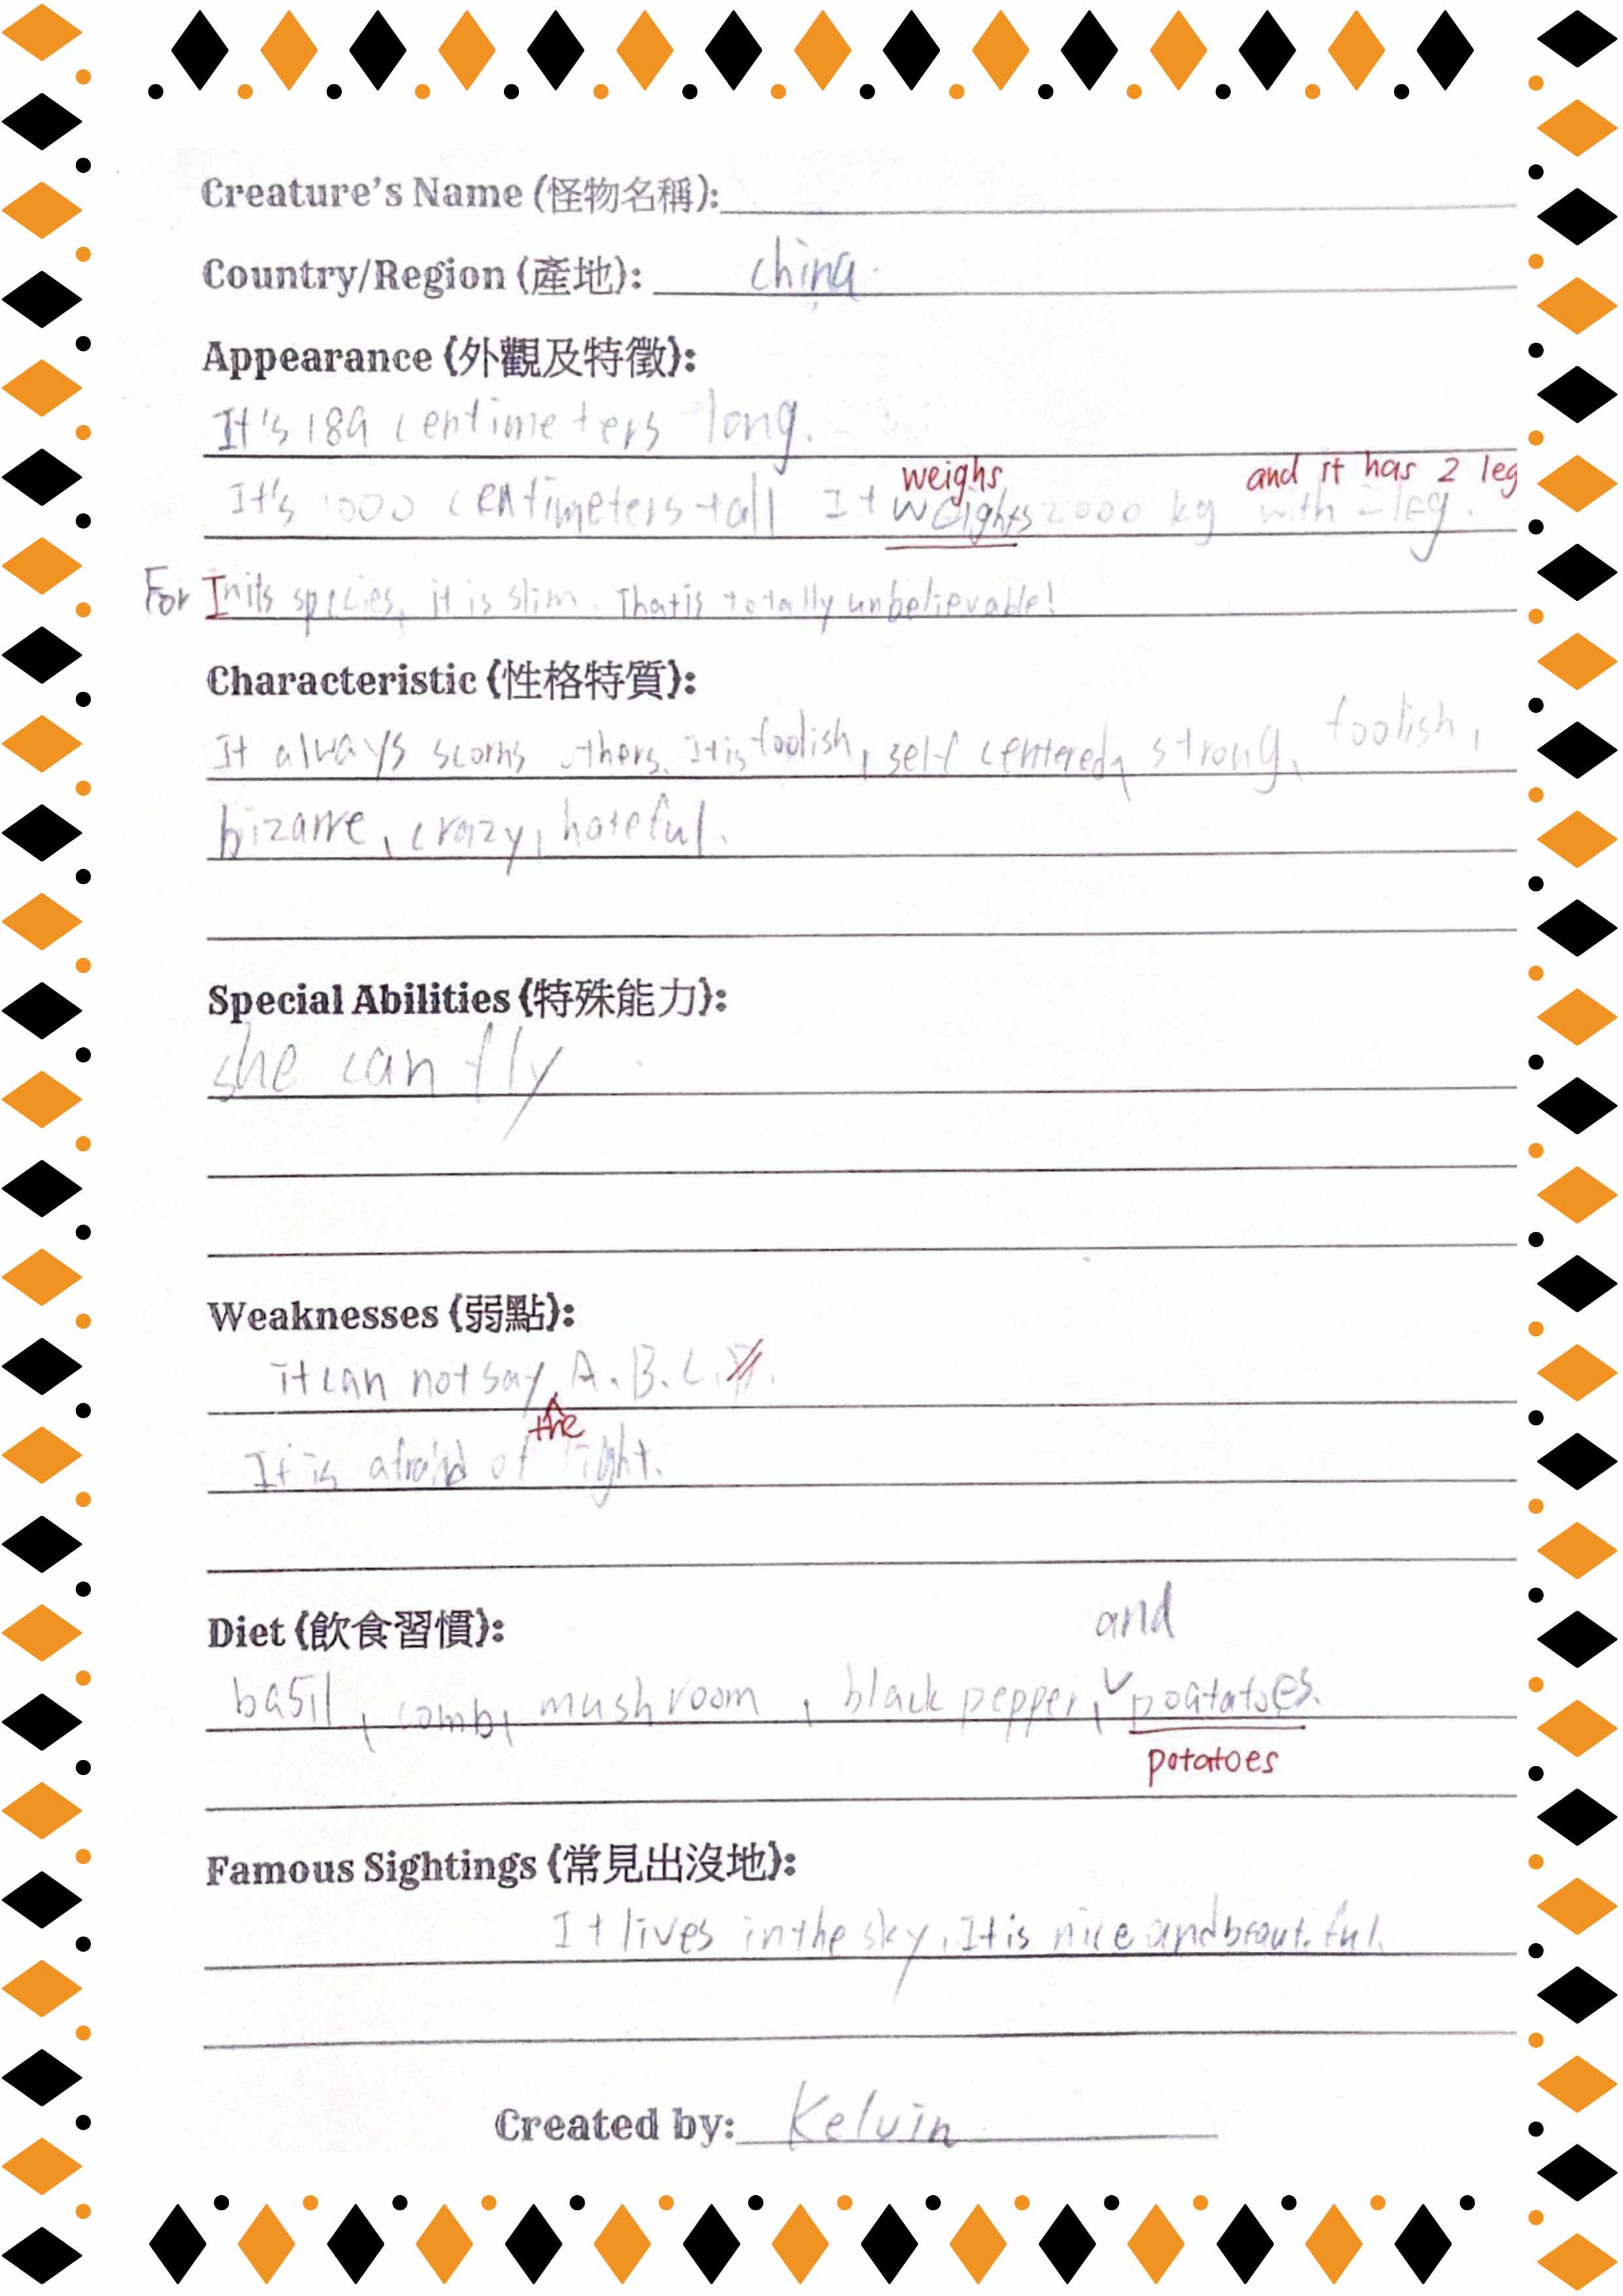 Creature's Name (怪物名稱):
Country/Region (產地): china.
Appearance (外觀及特徵):
It's 189 centimeters long.
weighs and it has 2 leg
It's 1000 centimeters tall It weights 2000 kg with 2 leg.
For Inits species, it is slim. That is totally unbelievable!
Characteristic (性格特質):
It always scorns others. It is foolish, self centered, strong, foolish,
bizarre, crazy, hateful.
Special Abilities (特殊能力):
she can fly
Weaknesses (弱點):
it can not say A. B. C.
the
It is afraid of light.
Diet (飲食習慣):
and
basil, comb, mushroom, black pepper, poatatoes.
potatoes
Famous Sightings (常見出沒地):
It lives in the sky. It is nice and beautiful.
Created by: Kelvin